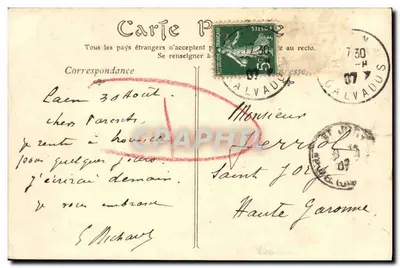 Carte
Tous les pays étrangers n'acceptent
au recto.
Se renseigner à
Correspondance
Caen 30 Août.
chers Parents,
je rentre à
pour quelques jours
j'écrirai demain.
je vous embrasse
E Richard
7 30
07
CALVADOS
7 30
07
CALVADOS
Monsieur
Saint Jory
Haute Garonne
07